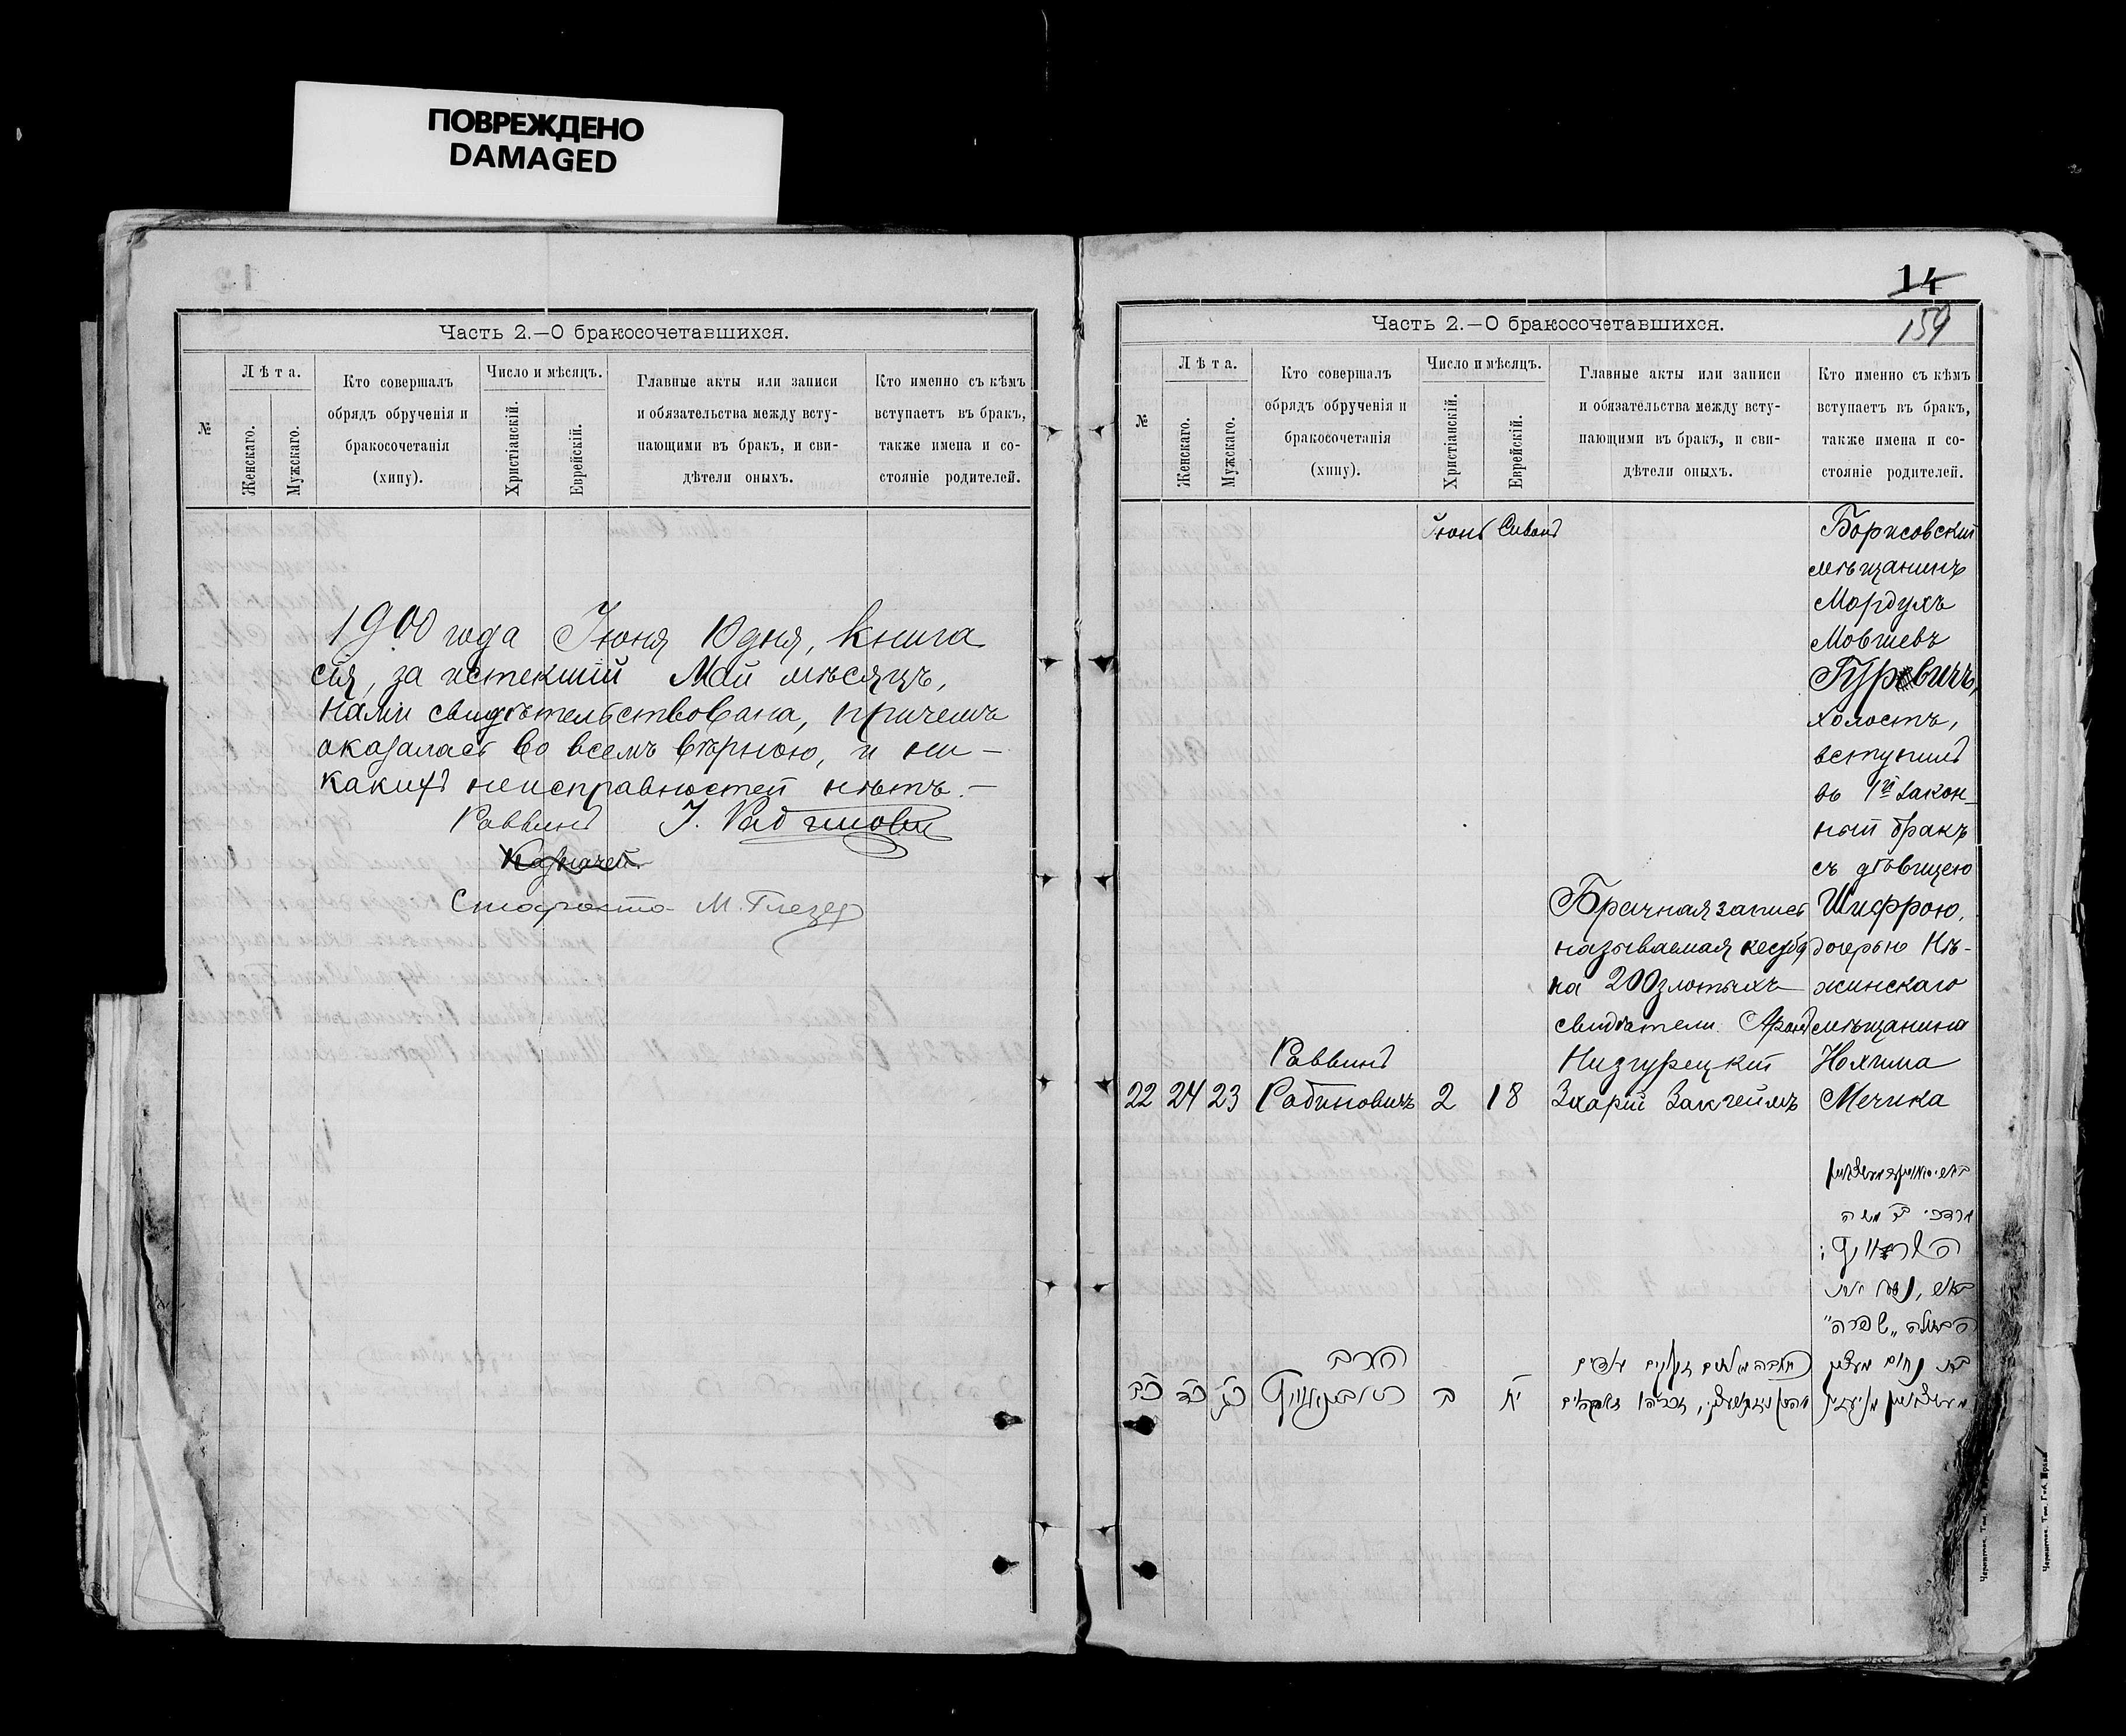 ПОВРЕЖДЕНО
DAMAGED
Часть 2.—О бракосочетавшихся.
№
Лѣта.
Женскаго.
Мужскаго.
Кто совершалъ
обрядъ обрученія и
бракосочетанія
(хипу).
Число и мѣсяцъ.
Христіанскій.
Еврейскій.
Главные акты или записи
и обязательства между всту-
пающими въ бракъ, и сви-
дѣтели оныхъ.
Кто именно съ кѣмъ
вступаетъ въ бракъ,
также имена и со-
стояніе родителей.
1900 года Іюня 10 дня, книга
сія, за истекшій Май мѣсяцъ,
нами свидѣтельствована, причемъ
оказалась во всемъ вѣрною, и ни-
какихъ неисправностей нѣтъ.—
Раввинъ
Казначей
Староста М. Глезер
14
159
Часть 2.—О бракосочетавшихся.
№
Лѣта.
Женскаго.
Мужскаго.
Кто совершалъ
обрядъ обрученія и
бракосочетанія
(хипу).
Число и мѣсяцъ.
Христіанскій.
Еврейскій.
Главные акты или записи
и обязательства между всту-
пающими въ бракъ, и сви-
дѣтели оныхъ.
Кто именно съ кѣмъ
вступаетъ въ бракъ,
также имена и со-
стояніе родителей.
22
24
23
Раввинъ
Рабиновичъ
Іюнь
2
Сивонъ
18
Брачная запись
называемая кесуба
на 200 злотыхъ
свидѣтели Аронъ
Низгурецкій
Захарій Закгеймъ
Борисовскій
мѣщанинъ
Мордухъ
Мовшевъ
Гуревичъ,
холостъ,
вступилъ
въ 1й закон-
ный бракъ
съ дѣвицею
Шифрою,
дочерью Нѣ-
жинскаго
мѣщанина
Нохима
Мечика
כב
כד
כג
הרב
ראבינאוויץ
ב
יח
מרדכי ב״ר משה
הבתולה „שפרה"